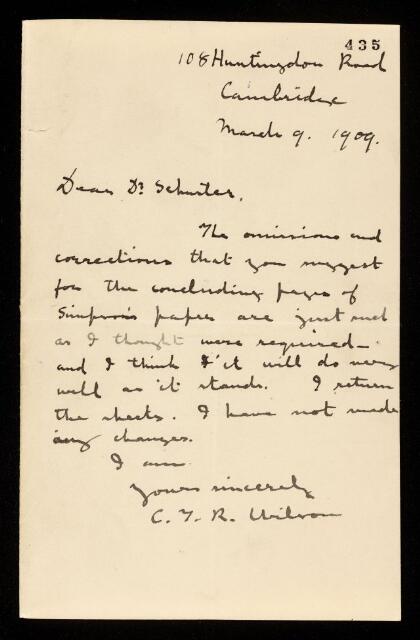 435
108 Huntingdon Road
Cambridge
March 9. 1909.
Dear Dr Schuster,
The omissions and
corrections that you suggest
for the concluding pages of
Simpson's paper are just such
as I thought were required
and I think it will do very
well as it stands. I return
the sheets. I have not made
any changes.
I am
Yours sincerely
C. T. R. Wilson